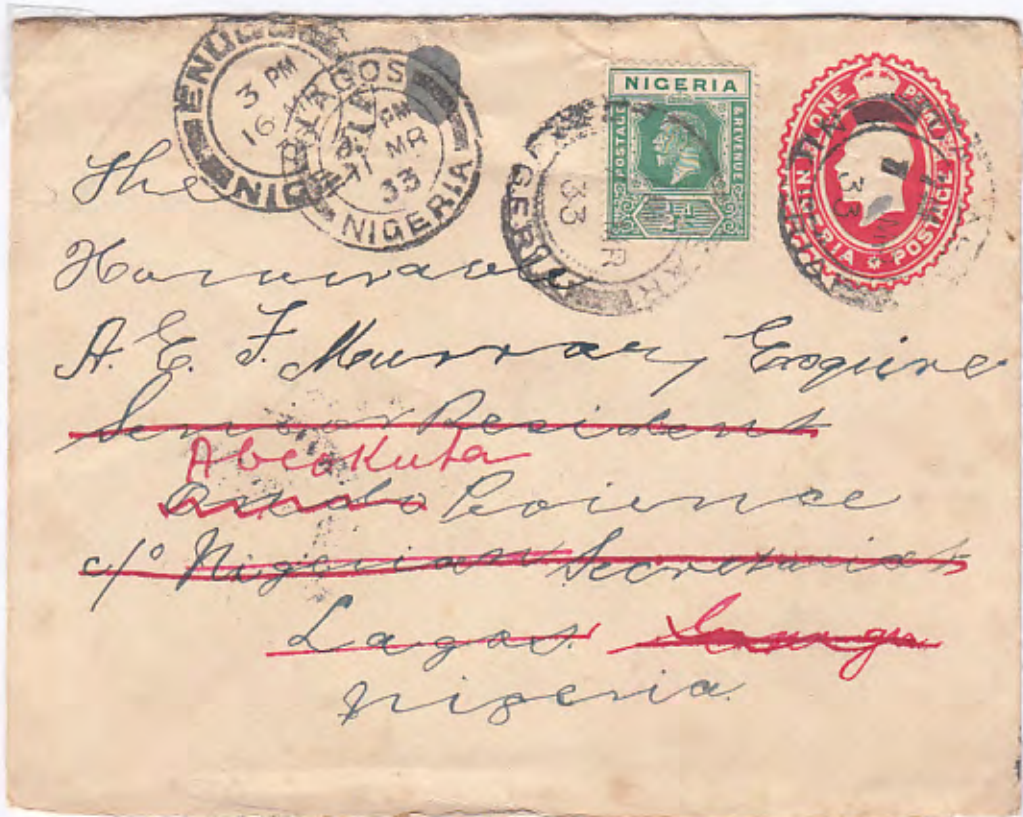 ENUGU
3 PM
16 MR
NIGERIA
LAGOS
PM
11 MR
33
NIGERIA
NIGERIA
POSTAGE & REVENUE
½d
MR
33
GERIA
ONE PENNY
NIGERIA POSTAGE
33
The
Honourable
A. E. F. Murray Esquire
Senior Resident
Abeokuta
Ondo Province
c/o Nigerian Secretariat
Lagos.
Nigeria.